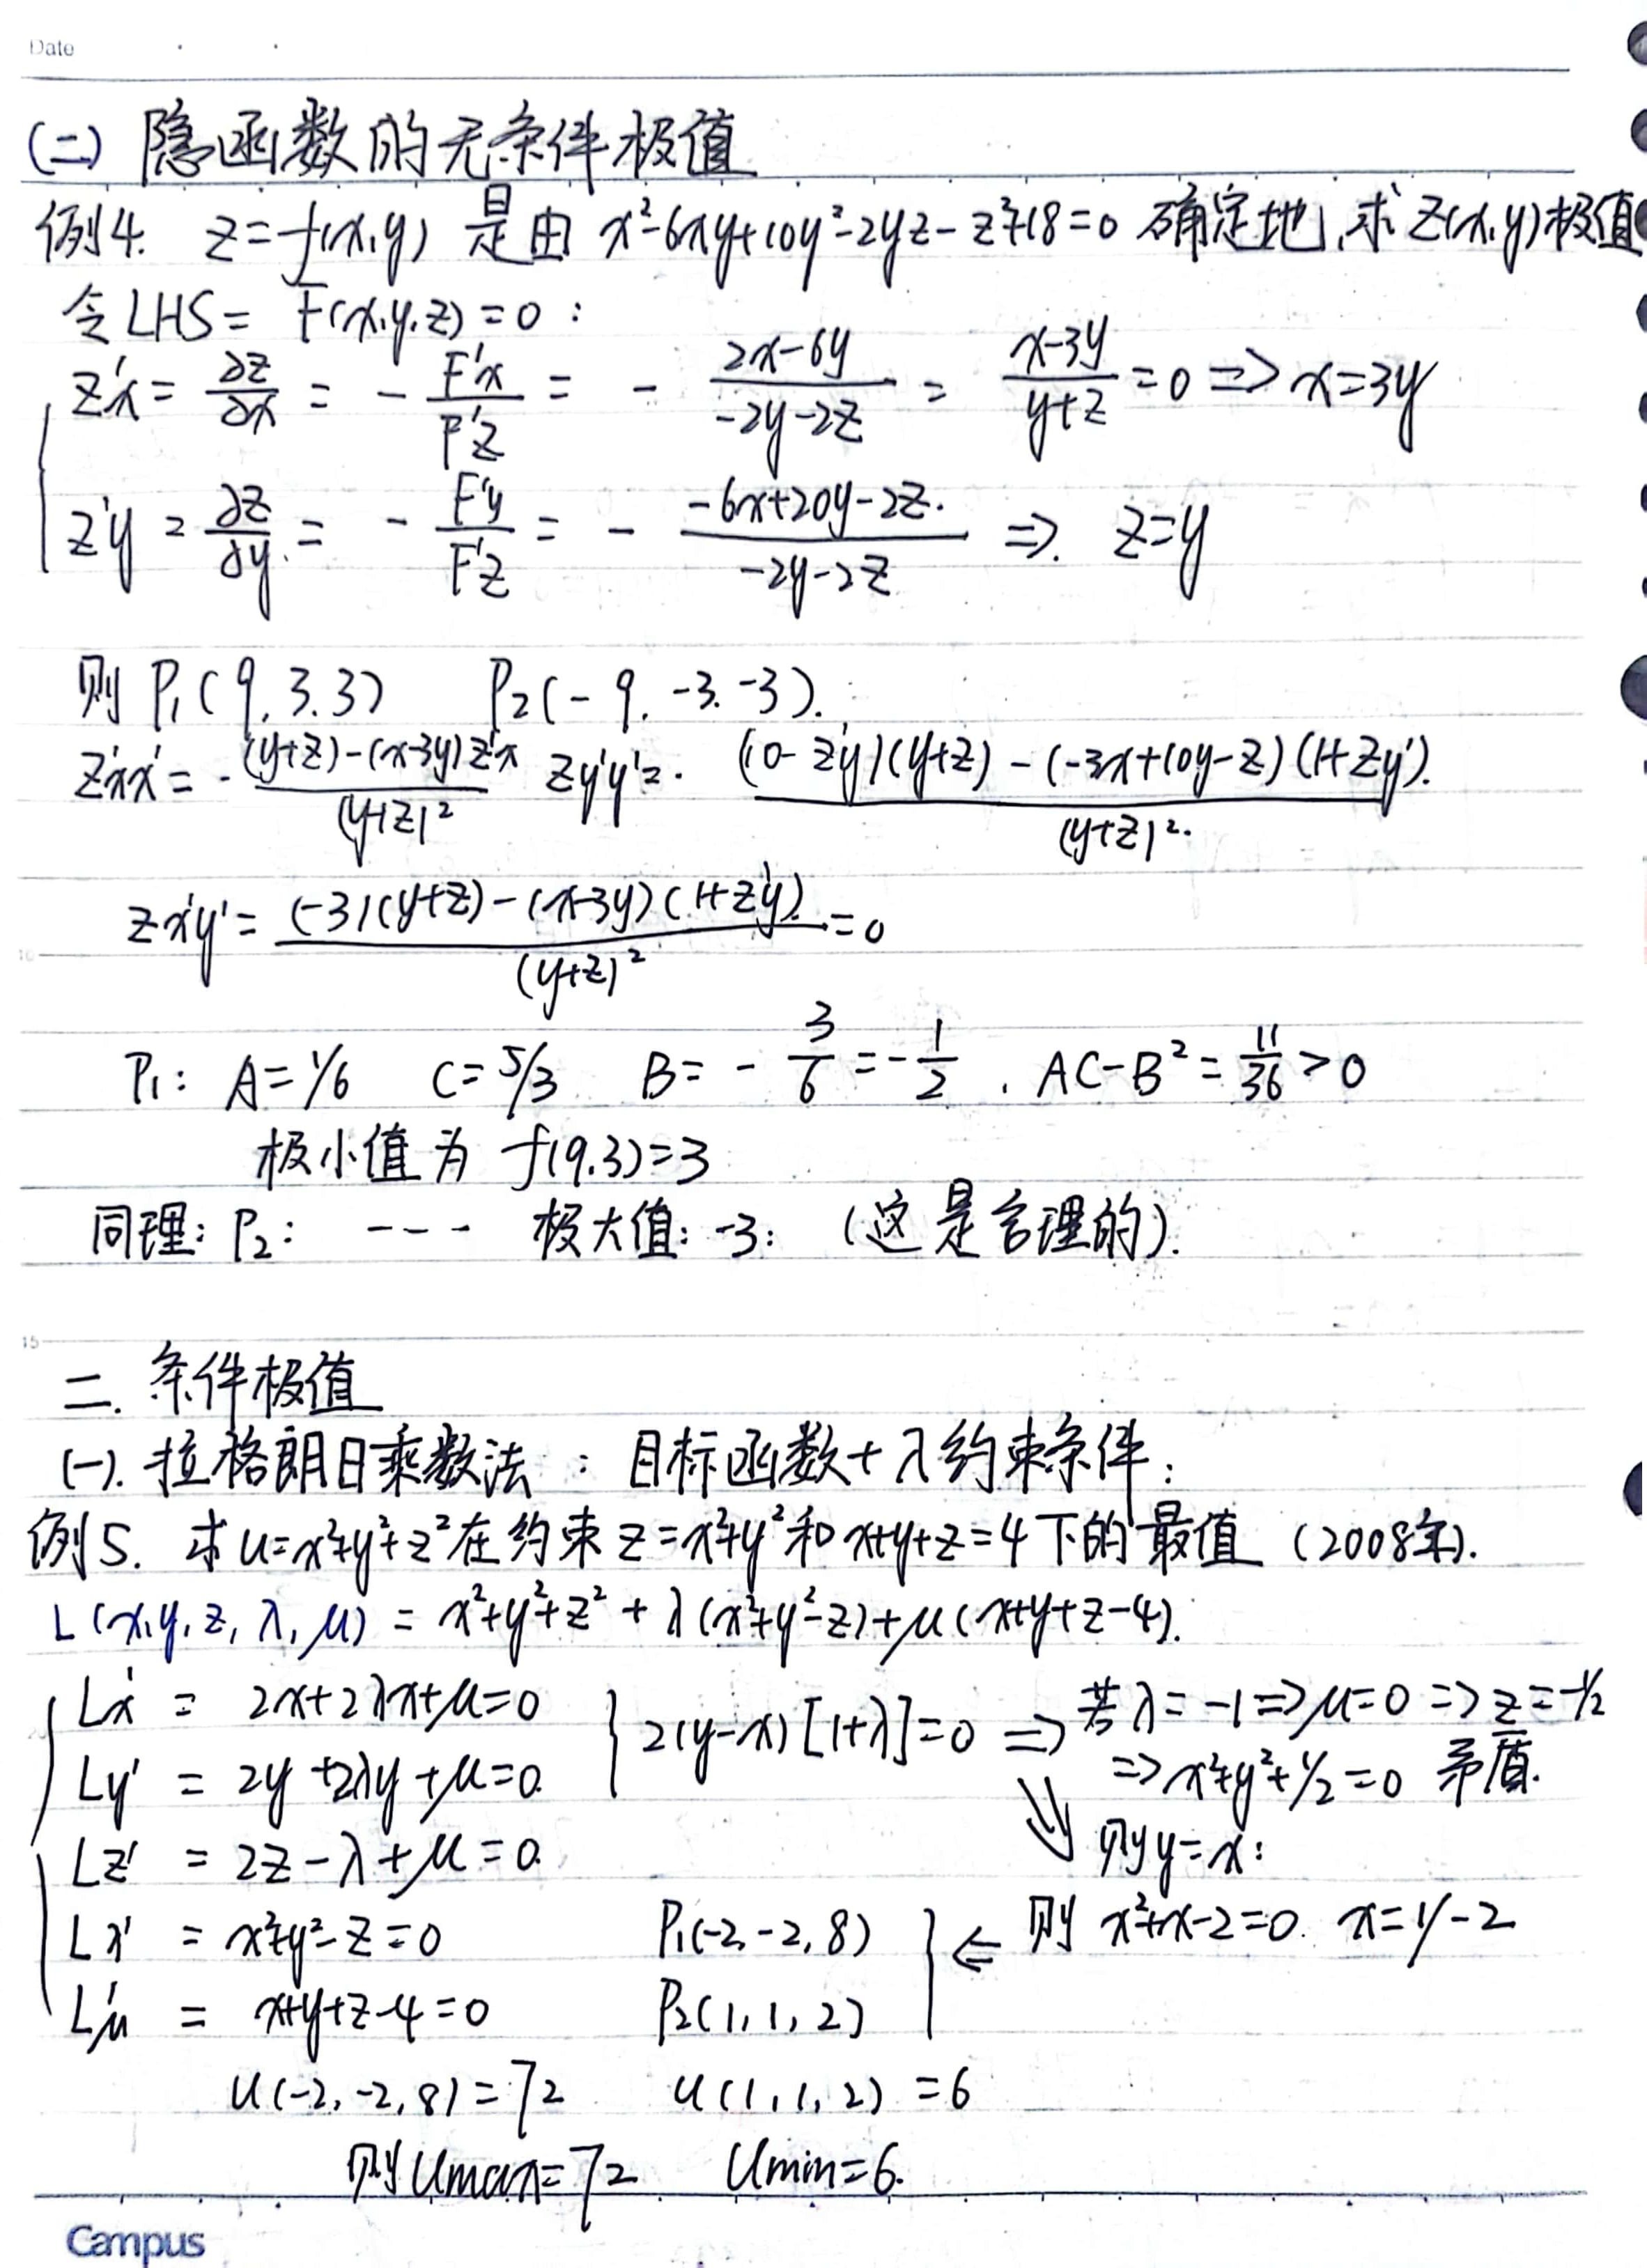 Date
(二) 隐函数的无条件极值
例4. z=f(x,y) 是由 x²-6xy+10y²-2yz-z²+18=0 确定地,求z(x,y)极值
令LHS= F(x,y,z)=0:
z'x = ∂z/∂x = - F'x/F'z = - (2x-6y)/(-2y-2z) = (x-3y)/(y+z) = 0 => x=3y
z'y = ∂z/∂y = - F'y/F'z = - (-6x+20y-2z)/(-2y-2z) => z=y
则 P₁(9,3,3) P₂(-9,-3,-3).
z'xx' = - ((y+z)-(x-3y)z'x)/(y+z)² zy'y' = ((10-z'y)(y+z)-(-3x+10y-z)(1+zy'))/(y+z)².
zx'y' = ((-3)(y+z)-(x-3y)(1+z'y))/(y+z)² = 0
P₁: A=1/6 C=5/3 B= - 3/6 = - 1/2 . AC-B² = 11/36 > 0
极小值为 f(9,3)=3
同理: P₂: --- 极大值: -3: (这是合理的).
二. 条件极值
(一). 拉格朗日乘数法 : 目标函数+λ约束条件:
例5. 求u=x²+y²+z²在约束 z=x²+y²和x+y+z=4下的最值 (2008年).
L(x,y,z,λ,μ) = x²+y²+z²+λ(x²+y²-z)+μ(x+y+z-4).
Lx' = 2x+2λx+μ=0 } 2(y-x)[1+λ]=0 => 若λ=-1=>μ=0=>z=-1/2
Ly' = 2y+2λy+μ=0. => x²+y²+1/2=0 矛盾.
Lz' = 2z-λ+μ=0. ⇓ 则y=x:
Lλ' = x²+y²-z=0 P₁(-2,-2,8) } <= 则 x²+x-2=0. x=1/-2
L'μ = x+y+z-4=0 P₂(1,1,2)
u(-2,-2,8)=72 u(1,1,2)=6
则Umax=72 Umin=6.
Campus